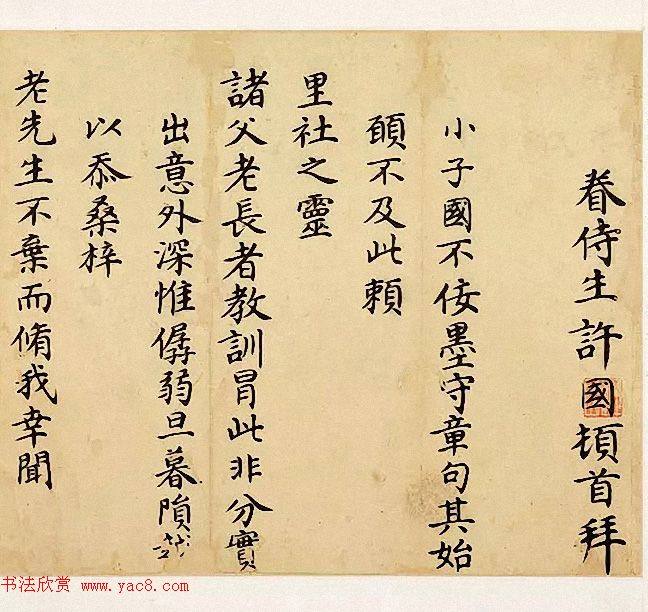 眷侍生許國頓首拜
小子國不佞墨守章句其始
願不及此賴
里社之靈
諸父老長者教訓冒此非分實
出意外深惟孱弱旦暮隕越
以忝桑梓
老先生不棄而脩我幸聞
书法欣赏 www.yac8.com